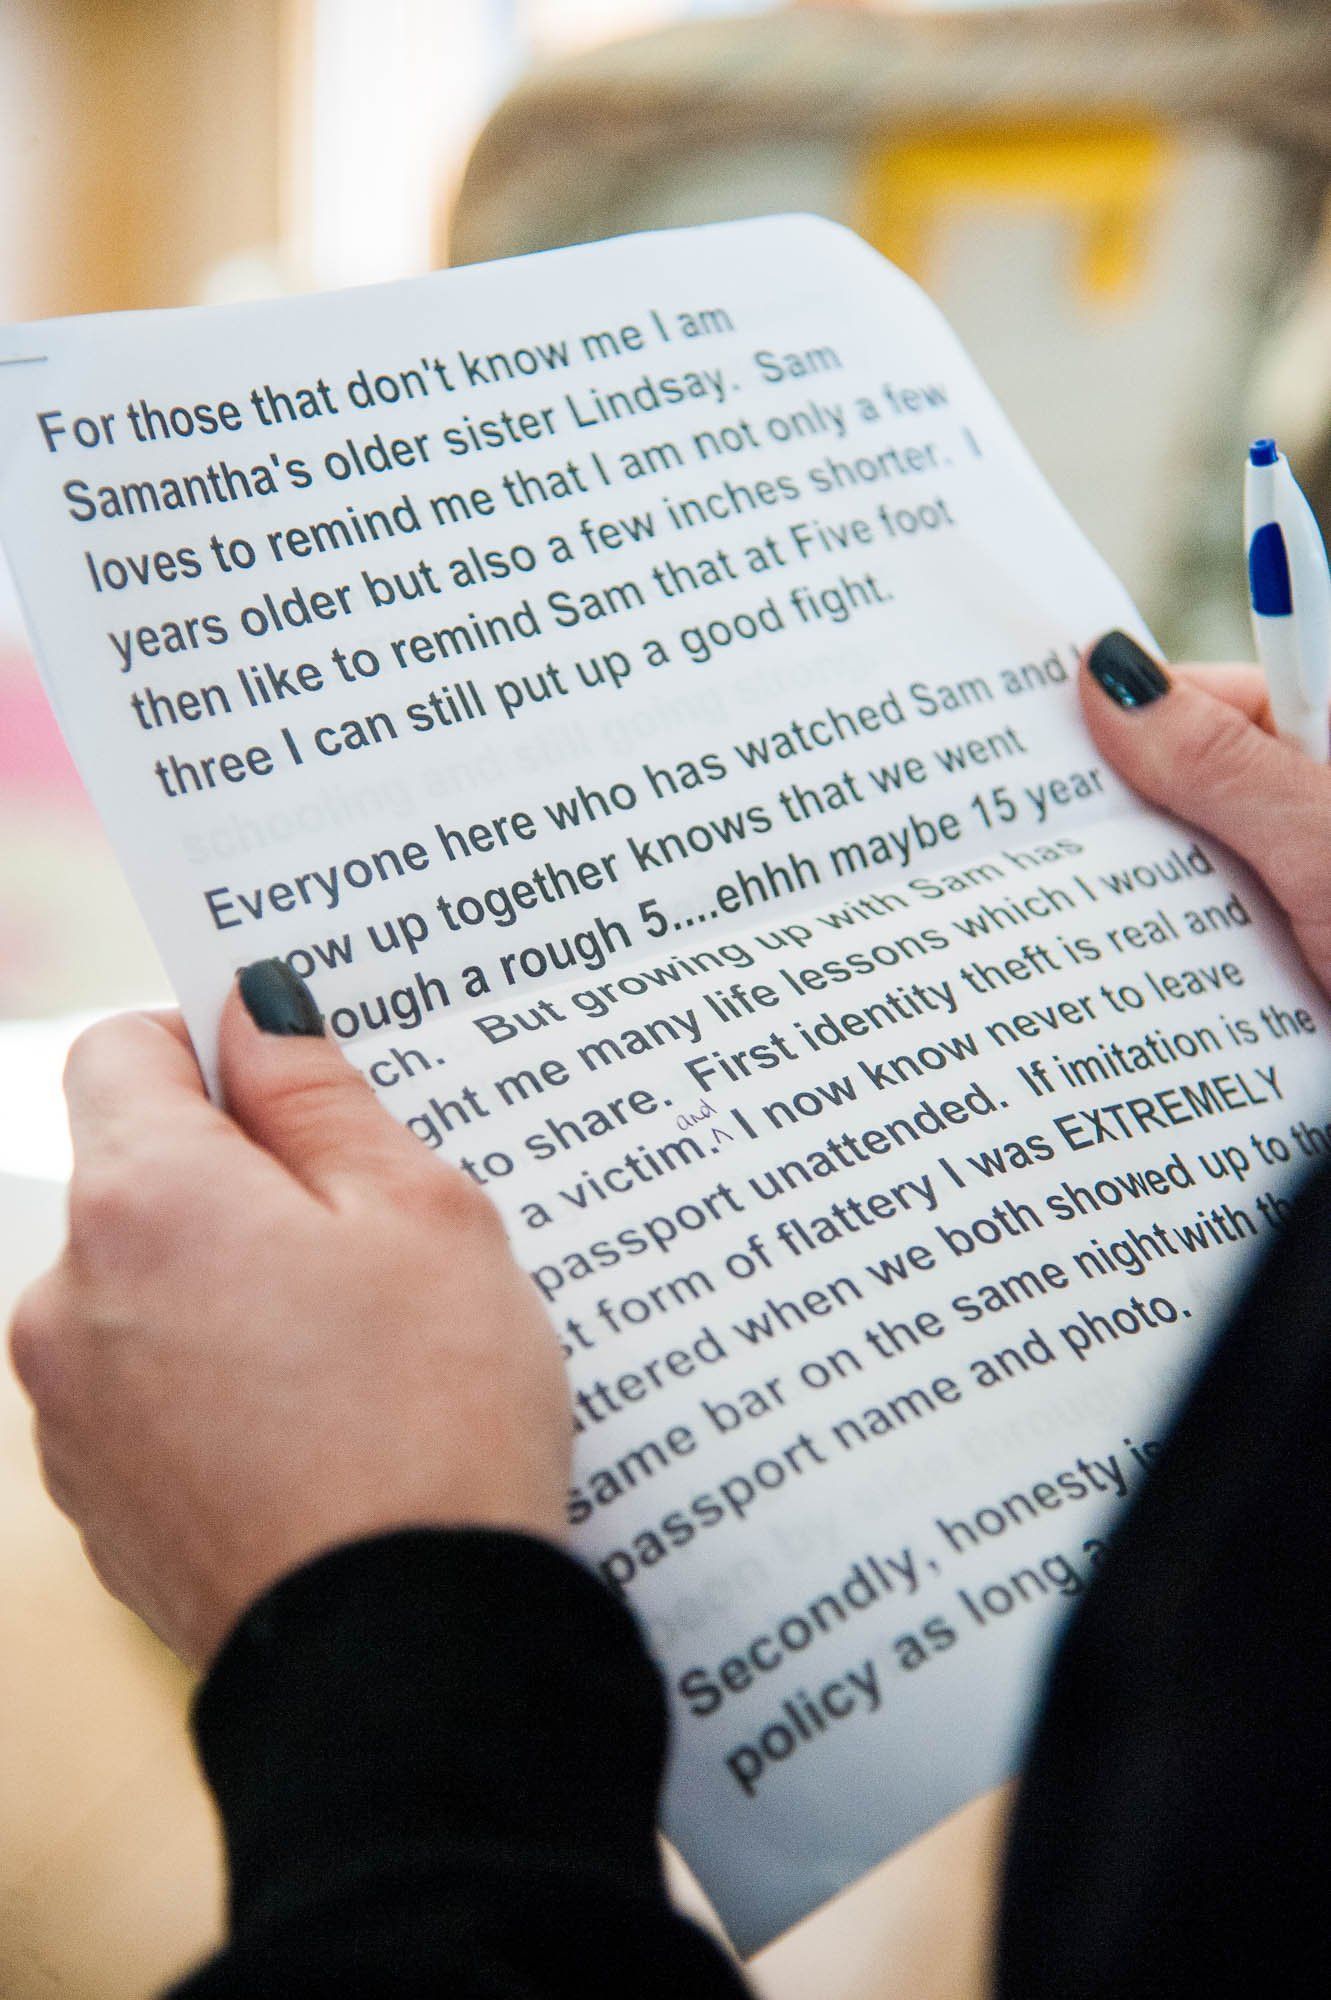 For those that don't know me I am
Samantha's older sister Lindsay. Sam
loves to remind me that I am not only a few
years older but also a few inches shorter. I
then like to remind Sam that at Five foot
three I can still put up a good fight.
schooling and still going strong
Everyone here who has watched Sam and I
grow up together knows that we went
rough a rough 5....ehhh maybe 15 year
ch. But growing up with Sam has
ght me many life lessons which I would
to share. First identity theft is real and
and
a victim. ^ I now know never to leave
passport unattended. If imitation is the
st form of flattery I was EXTREMELY
attered when we both showed up to the
same bar on the same night with th
passport name and photo.
Secondly, honesty is
policy as long a